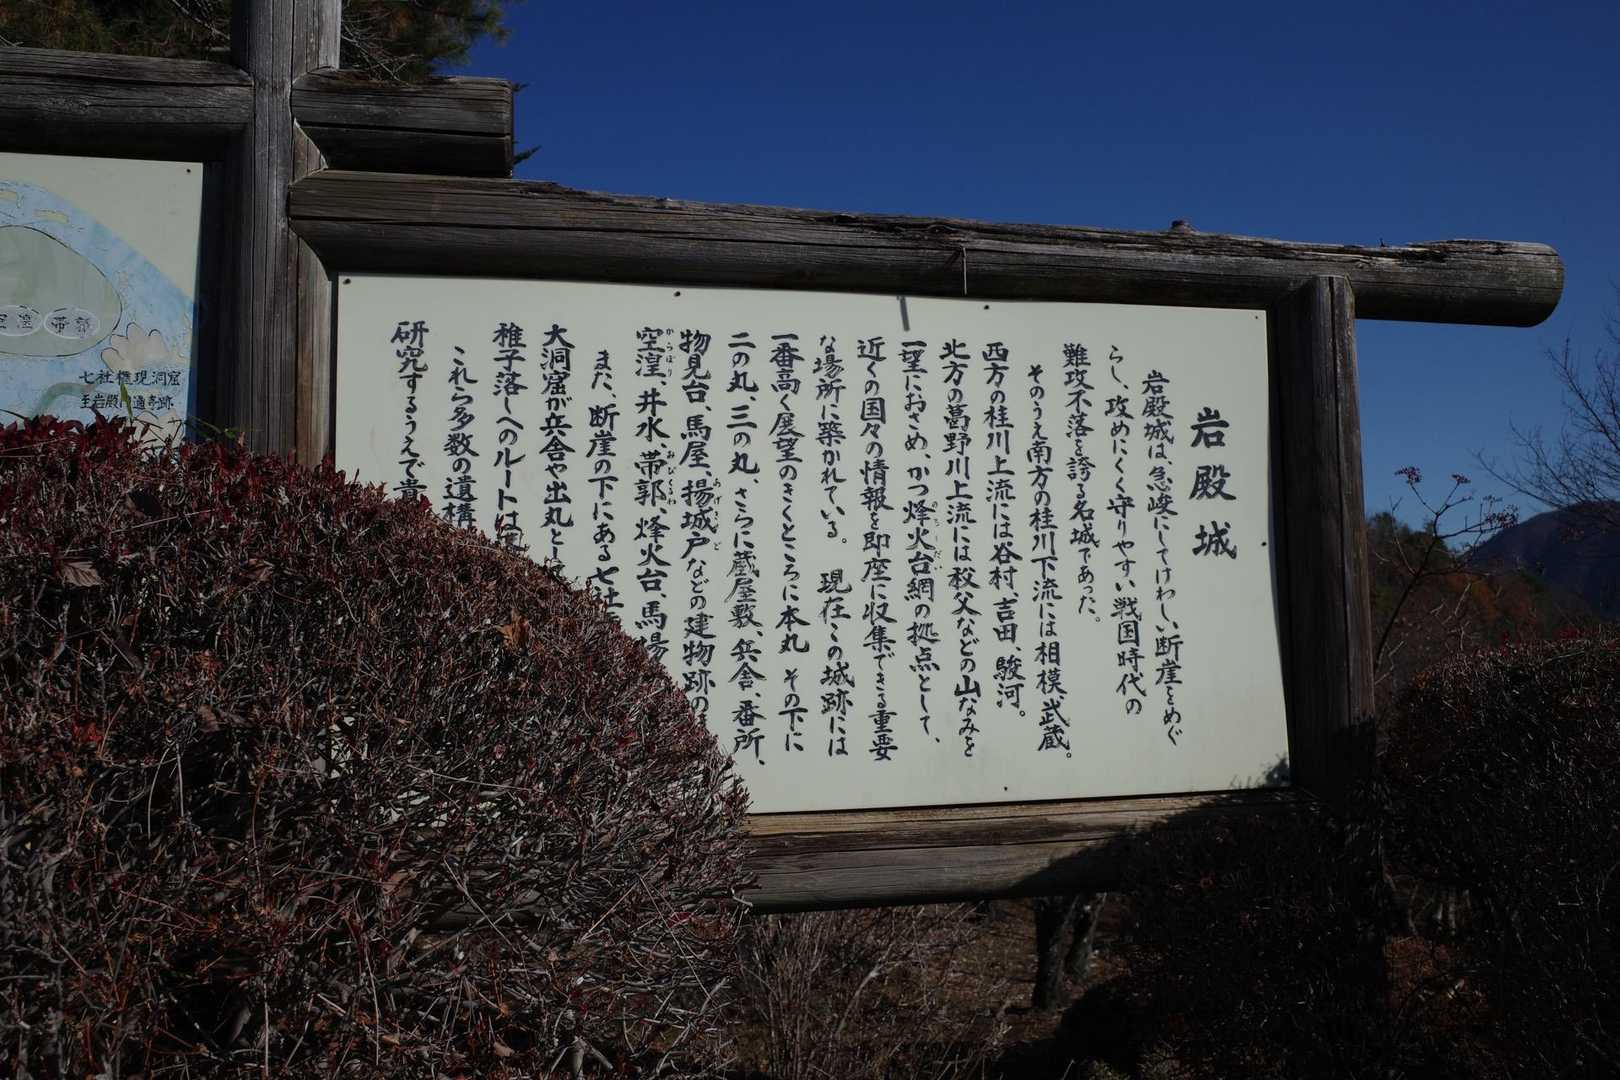 岩殿城
岩殿城は、急峻にしてけわしい断崖をめぐ
らし、攻めにくく守りやすい戦国時代の
難攻不落を誇る名城であった。
そのうえ南方の桂川下流には相模、武蔵。
西方の桂川上流には谷村、吉田、駿河。
北方の葛野川上流には秩父などの山なみを
一望におさめ、かつ烽火台網の拠点として、
近くの国々の情報を即座に収集できる重要
な場所に築かれている。 現在この城跡には
一番高く展望のきくところに本丸 その下に
二の丸、三の丸、さらに蔵屋敷、兵舎、番所、
物見台、馬屋、揚城戸などの建物跡の
空湟、井水、帯郭、烽火台、馬場
また、断崖の下にある七社
大洞窟が兵舎や出丸とし
稚子落しへのルートは
これら多数の遺構
研究するうえで貴
空湟 帯郭
七社権現洞窟
至岩殿
跡